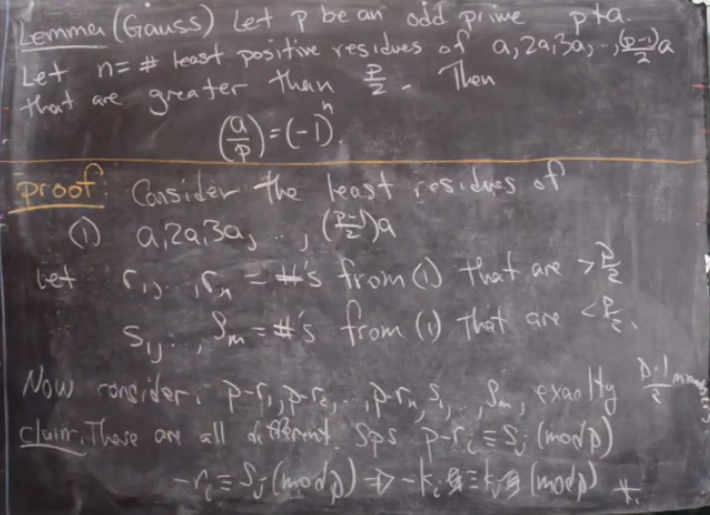 Lemma (Gauss) Let p be an odd prime p∤a.
Let n = # least positive residues of a, 2a, 3a, .., (p-1)/2 a
that are greater than p/2. Then
(a/p) = (-1)^n.
proof: Consider the least residues of
(1) a, 2a, 3a, .., (p-1/2)a
Let r₁, .., rₙ = #'s from (1) that are > p/2
S₁, .., Sₘ = #'s from (1) that are < p/2.
Now consider: p-r₁, p-r₂, .., p-rₙ, s₁, .., Sₘ, exaclty p-1/2
claim. These are all different. Sps p-rᵢ ≡ Sⱼ (mod p)
-rᵢ ≡ Sⱼ (mod p) ⇒ -kᵢ ≡ kⱼ (mod p)